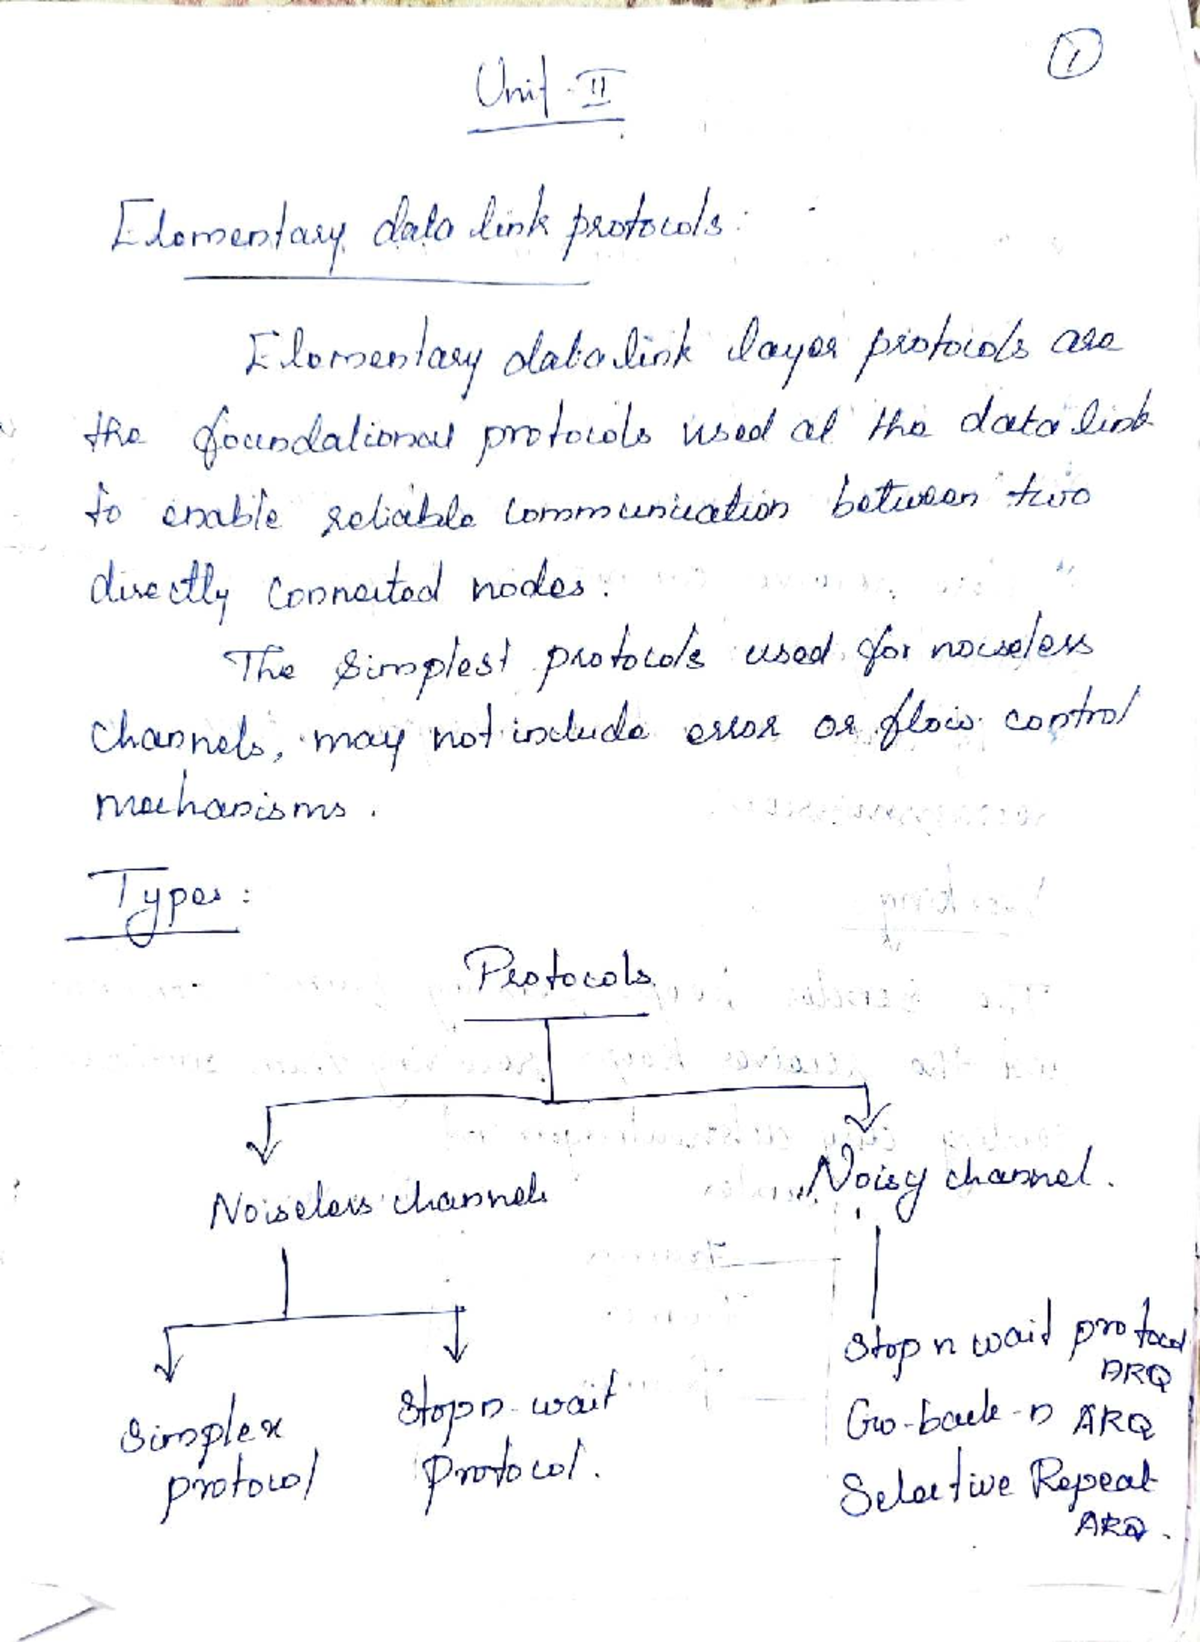 1
Unit-II
Elementary data link protocols:
Elementary data link layer protocols are
the foundational protocols used at the data link
to enable reliable communication between two
directly connected nodes.
The simplest protocols used for noiseless
channels, may not include error or flow control
mechanisms.
Types:
Protocols
Noiseless channels
Noisy channel.
Simplex
protocol
Stop n wait
protocol.
Stop n wait protocol
ARQ
Go-back-n ARQ
Selective Repeat
ARQ.